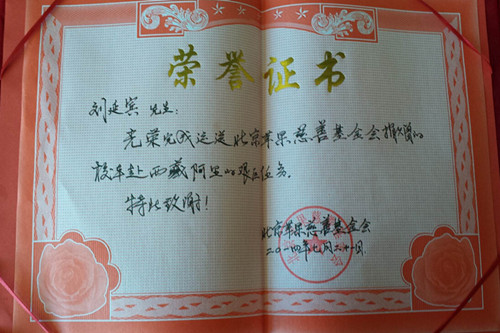 荣誉证书
刘延宾 先生:
光荣完成运送北京苹果慈善基金会捐赠的
校车赴西藏阿里的艰巨任务。
特此致谢!
北京苹果慈善基金会
二〇一四年七月二十一日